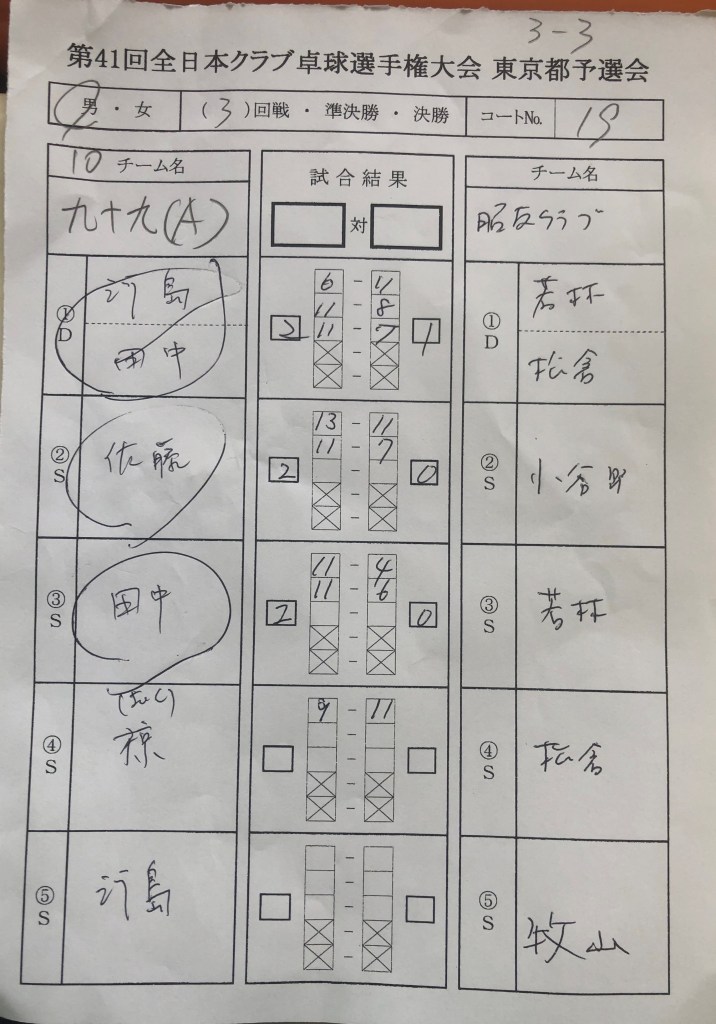 3-3
第41回全日本クラブ卓球選手権大会 東京都予選会
男・女 (3)回戦・準決勝・決勝 コートNo. 19
10 チーム名
九十九(A)
試合結果
対
チーム名
昭友クラブ
①D 田中
2 1
6-11
11-8
11-7
若林
松倉
②S 佐藤
2 0
13-11
11-7
②S
③S 田中
2 0
11-4
11-6
③S 若林
④S
9-11
④S 松倉
⑤S
⑤S 牧山